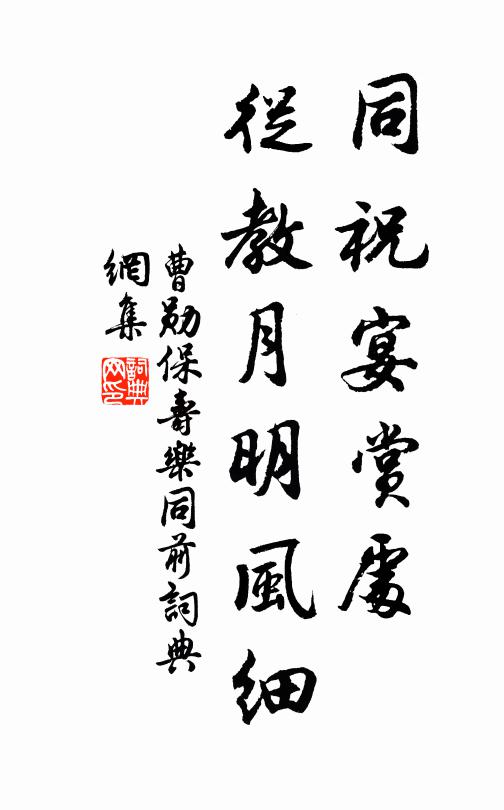 同祝宴賞處
從教月明風細
曹勛保壽樂同前詞典
網集
詞典
网印